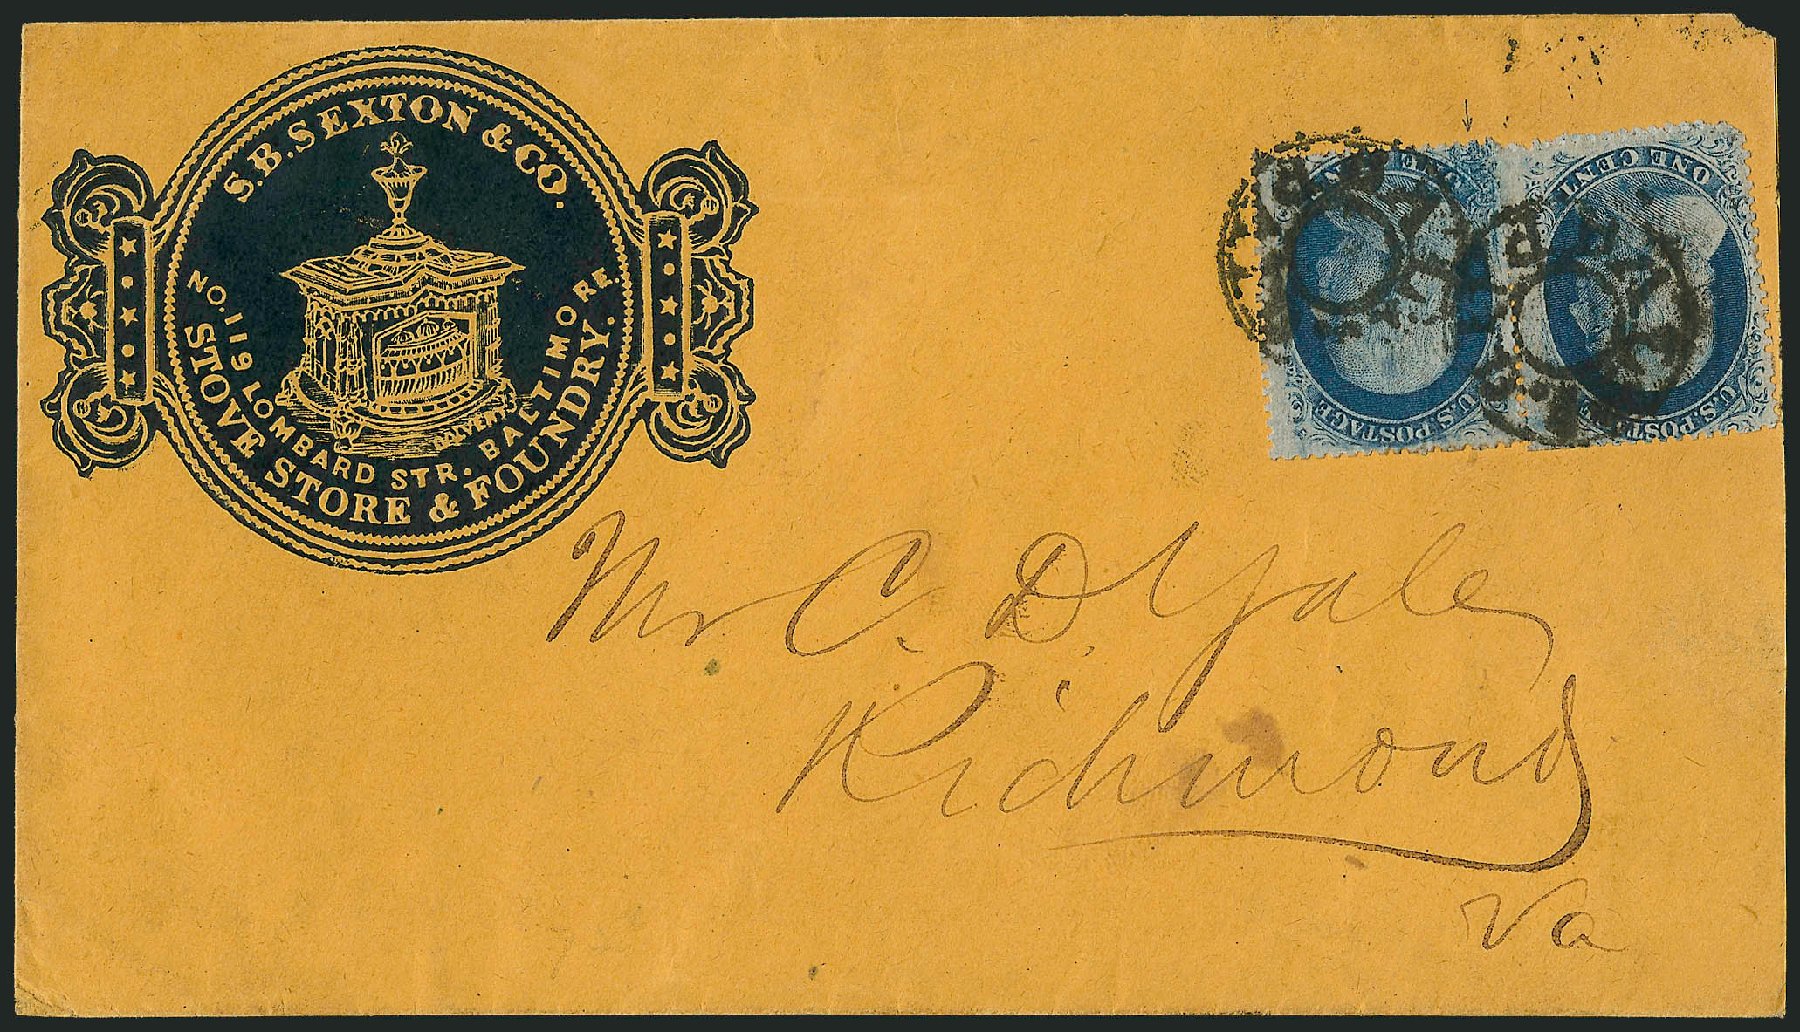 S. B. SEXTON & CO.
NO. 119 LOMBARD STR. BALTIMORE
STOVE STORE & FOUNDRY.
ONE CENT
U.S. POSTAGE
ONE CENT
U.S. POSTAGE
Mr C. D. Yale
Richmond
Va